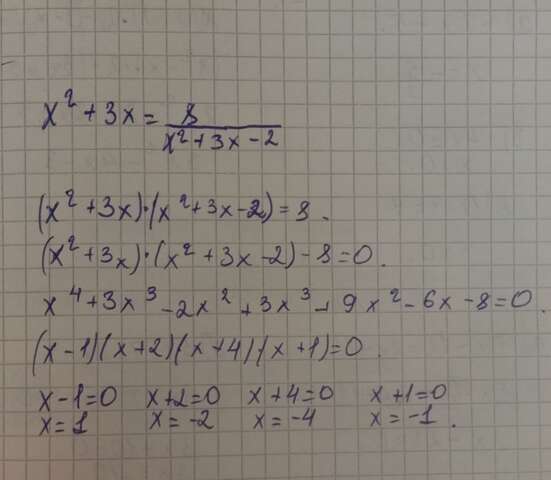 x² + 3x = 8/(x² + 3x - 2)
(x² + 3x)·(x² + 3x - 2) = 8.
(x² + 3x)·(x² + 3x - 2) - 8 = 0.
x⁴ + 3x³ - 2x² + 3x³ + 9x² - 6x - 8 = 0.
(x - 1)(x + 2)(x + 4)(x + 1) = 0.
x - 1 = 0 x + 2 = 0 x + 4 = 0 x + 1 = 0
x = 1 x = -2 x = -4 x = -1.